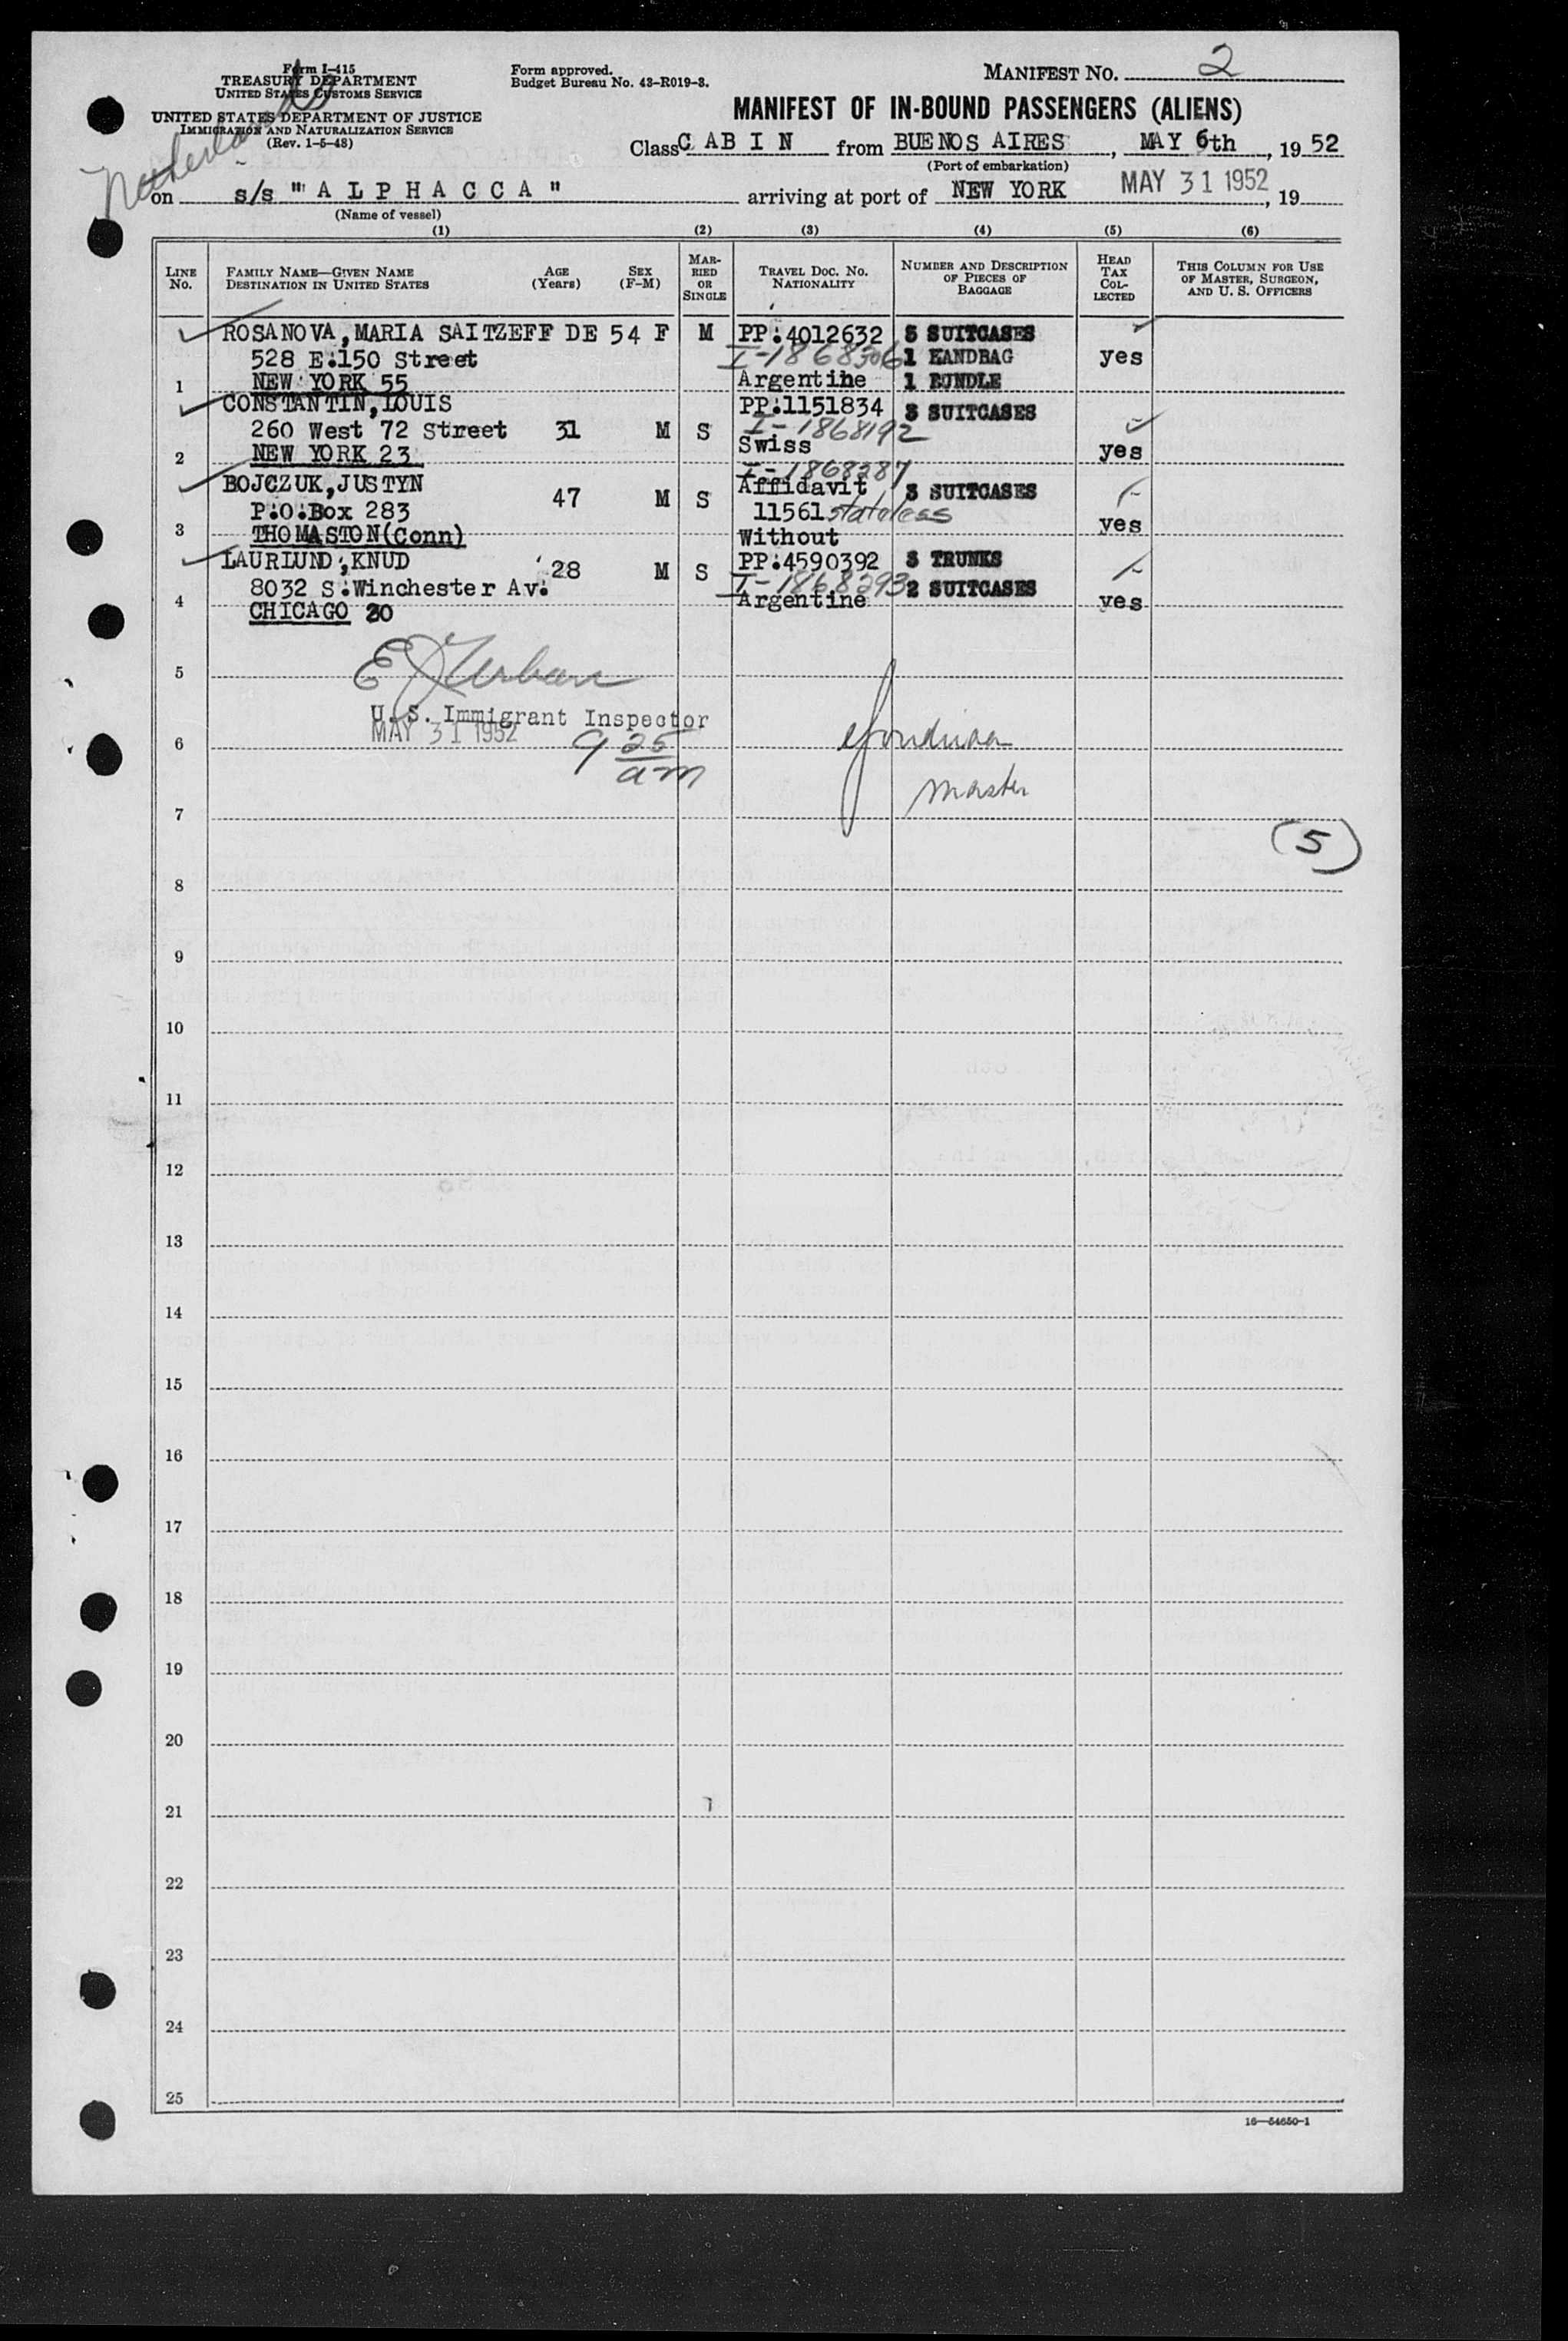 Form I-415
TREASURY DEPARTMENT
UNITED STATES CUSTOMS SERVICE
UNITED STATES DEPARTMENT OF JUSTICE
IMMIGRATION AND NATURALIZATION SERVICE
(Rev. 1-5-48)
Netherlands
Form approved.
Budget Bureau No. 43-R019-3.
MANIFEST NO. 2
MANIFEST OF IN-BOUND PASSENGERS (ALIENS)
Class C AB I N from BUENOS AIRES, MAY 6th, 1952
(Port of embarkation)
on s/s "A L P H A C C A" arriving at port of NEW YORK MAY 31 1952, 19
(Name of vessel)
(1) (2) (3) (4) (5) (6)
LINE No. FAMILY NAME—GIVEN NAME DESTINATION IN UNITED STATES AGE (Years) SEX (F-M) MARRIED OR SINGLE TRAVEL DOC. NO. NATIONALITY NUMBER AND DESCRIPTION OF PIECES OF BAGGAGE HEAD TAX COLLECTED THIS COLUMN FOR USE OF MASTER, SURGEON, AND U. S. OFFICERS
ROSANOVA, MARIA SAITZEFF DE 54 F M PP:4012632 5 SUITCASES
528 E:150 Street I-1868306 1 HANDBAG yes
1 NEW YORK 55 Argentine 1 BUNDLE
CONSTANTIN, LOUIS PP:1151834 3 SUITCASES
260 West 72 Street 31 M S I-1868192
2 NEW YORK 23 Swiss yes
I-1868287
BOJCZUK, JUSTYN 47 M S Affidavit 3 SUITCASES
P:O:Box 283 11561 stateless yes
3 THOMASTON(Conn) Without
LAURLUND, KNUD 28 M S PP:4590392 3 TRUNKS
8032 S:Winchester Av: I-1868293 2 SUITCASES
4 CHICAGO 20 Argentine yes
5
E J Urban
U.S. Immigrant Inspector
MAY 31 1952
6
9 25 am
master
7
(5)
8
9
10
11
12
13
14
15
16
17
18
19
20
21
22
23
24
25
16—54650-1